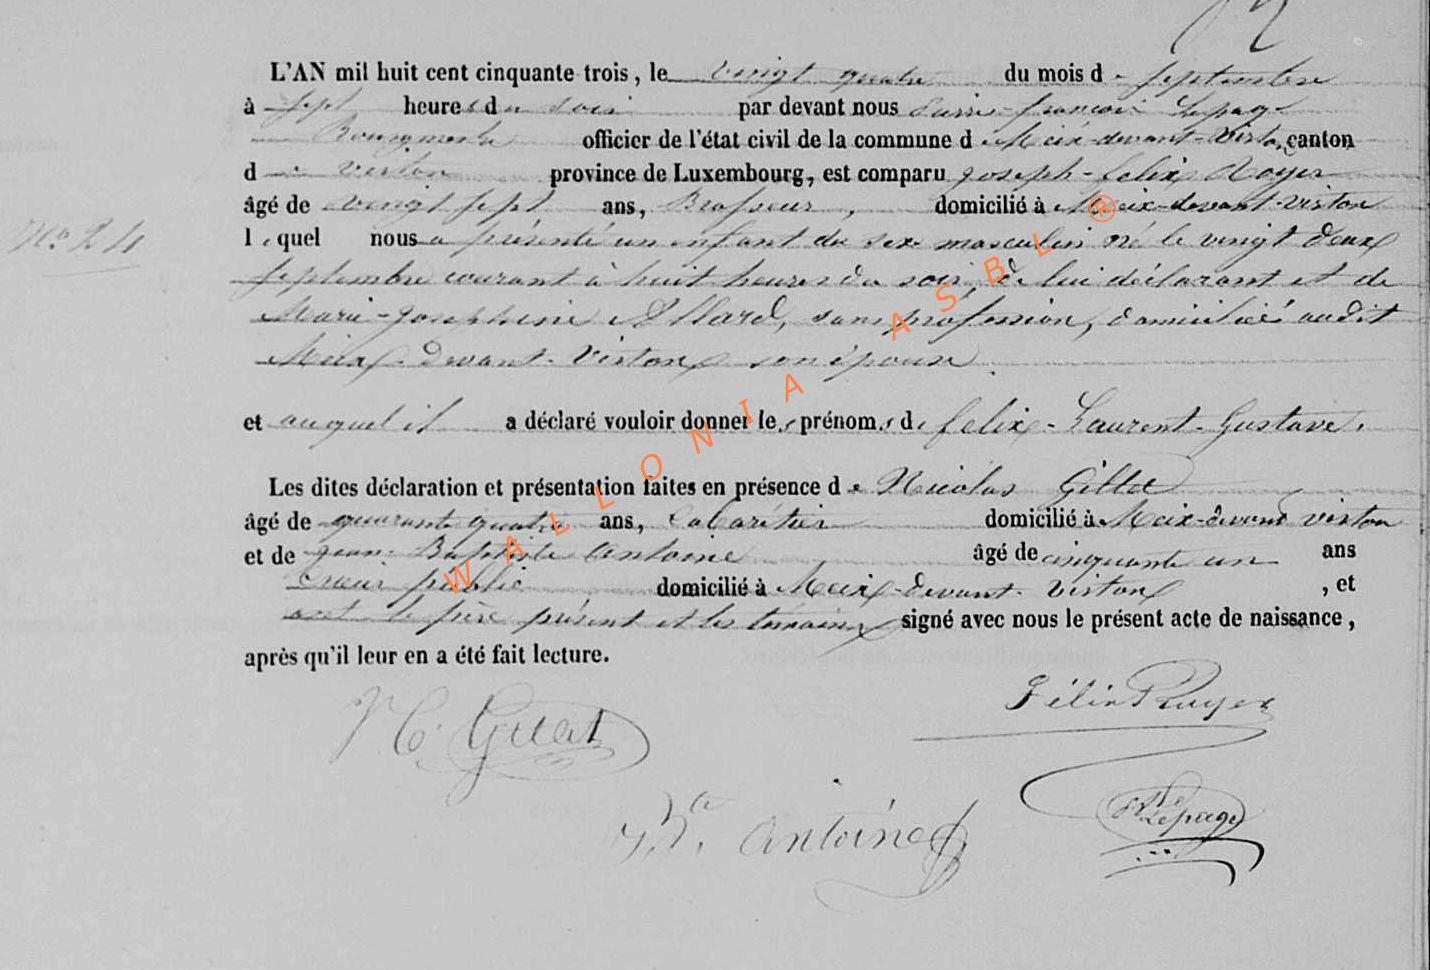 L'AN mil huit cent cinquante trois, le vingt quatre du mois de septembre
à sept heures du soir par devant nous Pierre-françois Lepage
Bourgmestre officier de l'état civil de la commune de Meix-devant-Virton, canton
de Virton province de Luxembourg, est comparu joseph-felix Royer
âgé de vingt sept ans, Brasseur, domicilié à Meix-devant-virton
lequel nous a présenté un enfant du sexe masculin né le vingt deux
septembre courant à huit heures du soir, de lui déclarant et de
Marie-josephine Allard, sans profession, domiciliée audit
Meix-devant-Virton son épouse
et auquel il a déclaré vouloir donner les prénoms de felix-Laurent-Gustave.
Les dites déclaration et présentation faites en présence de Nicolas
âgé de quarante quatre ans, cabaretier domicilié à Meix-devant virton
et de jean-Baptiste Antoine âgé de cinquante un ans
crieur public domicilié à Meix-devant-virton, et
ont le père présent et les témoins signé avec nous le présent acte de naissance,
après qu'il leur en a été fait lecture.
No 24
Félix Royer
N.
Antoine
Lepage
WALLONIA ASBL ®